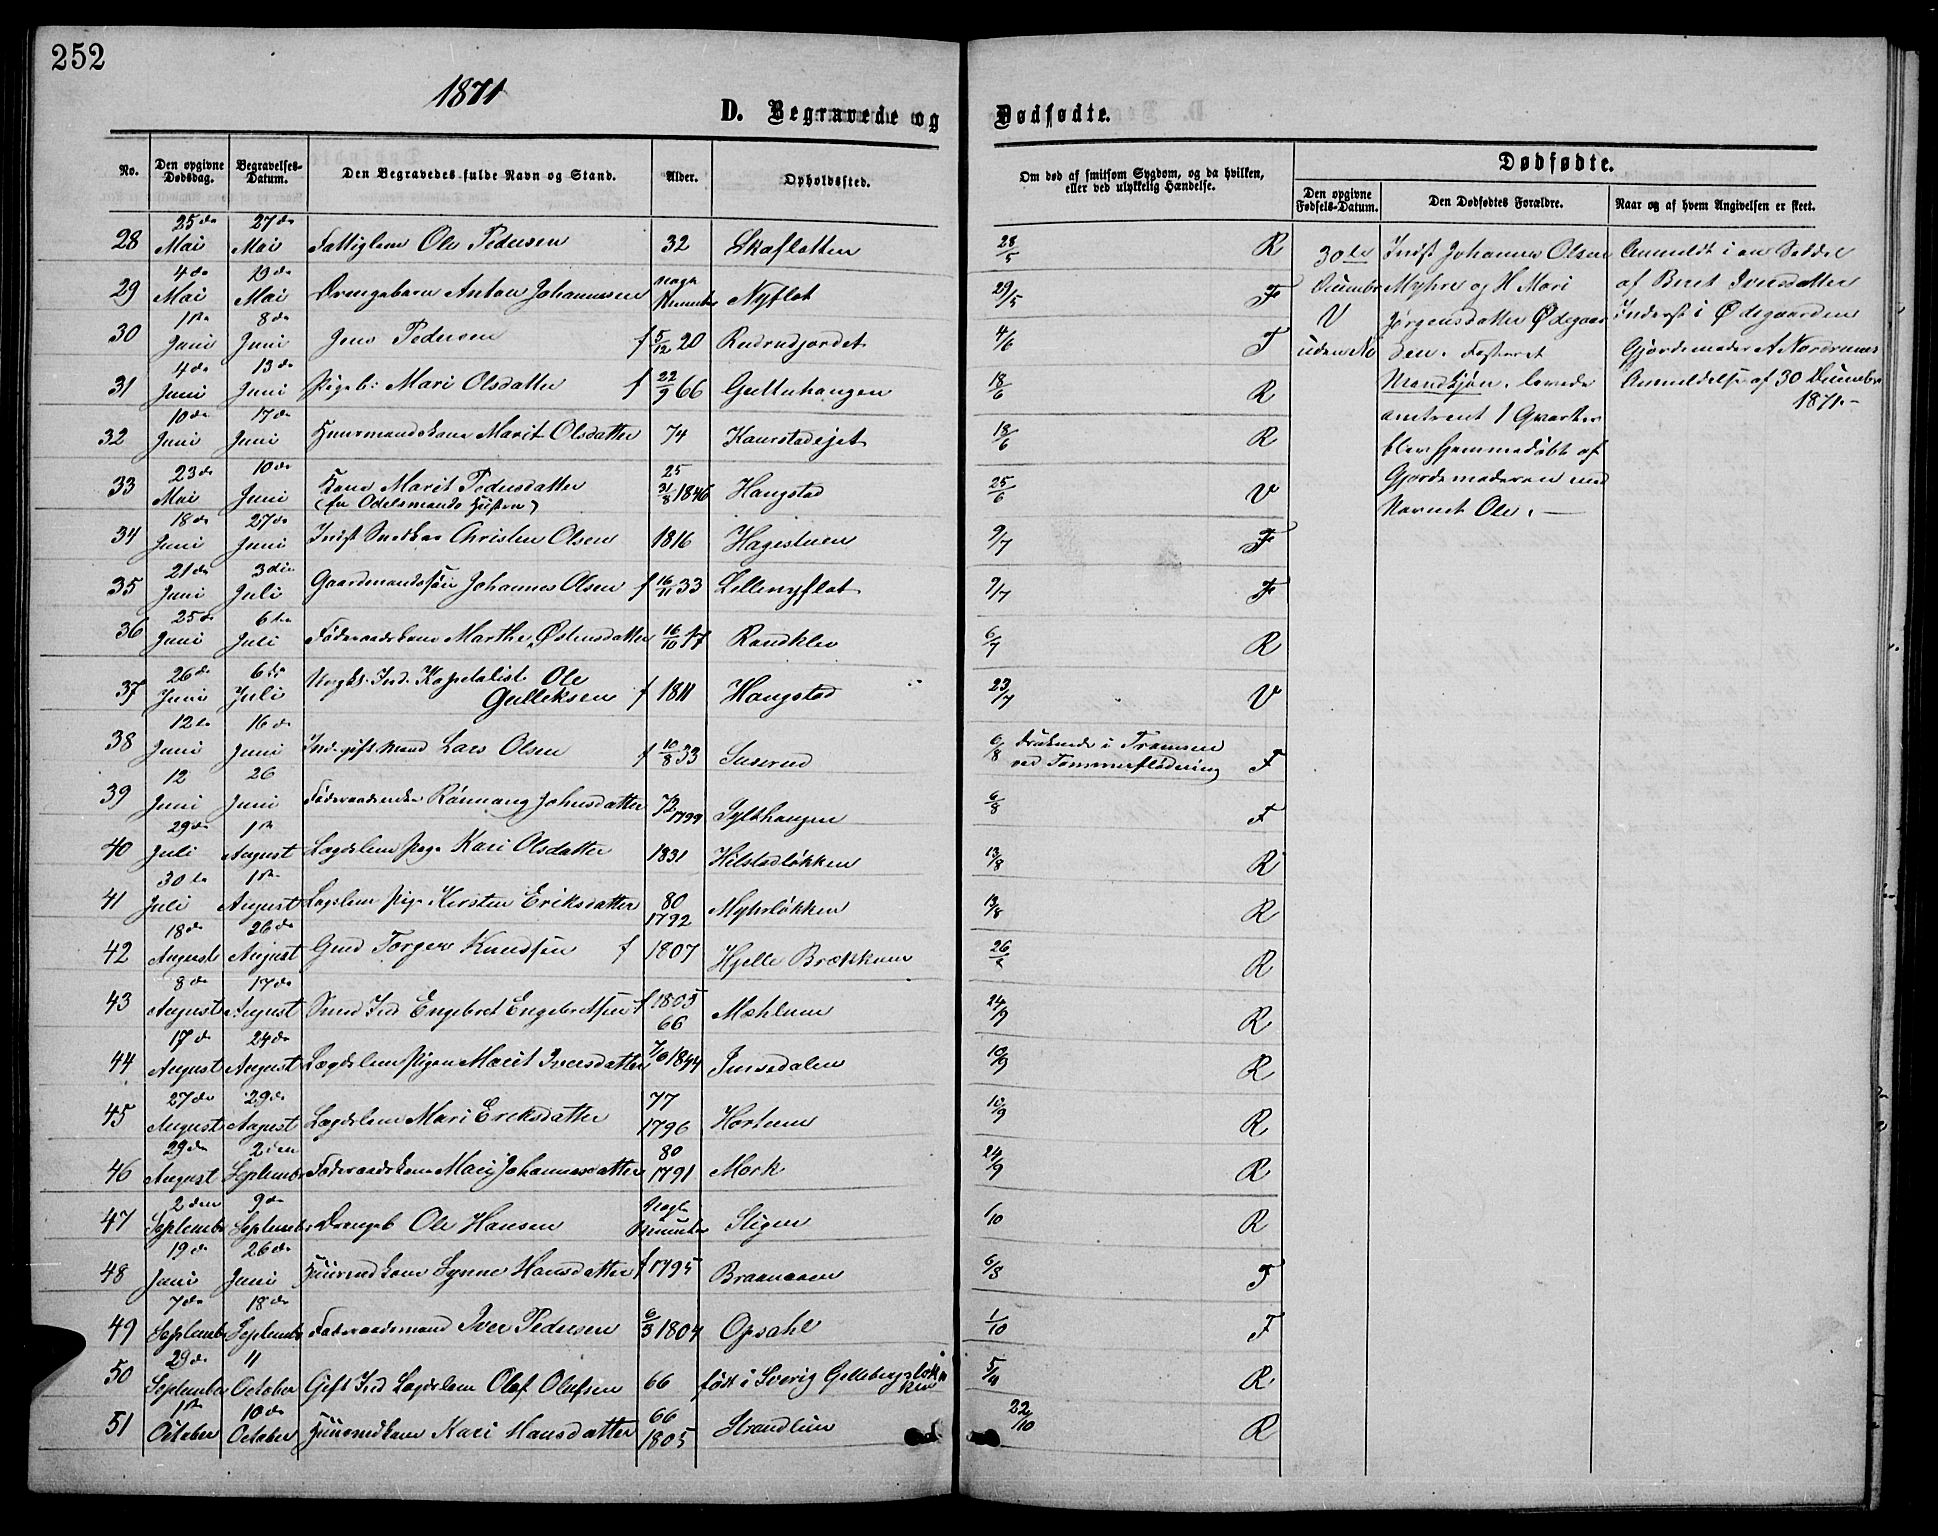 252
1871
D. Begravede og Dødfødte.
No. Den opgivne Dødsdag. Begravelses-Datum. Den Begravedes fulde Navn og Stand. Alder. Opholdssted. Om død af smitsom Sygdom, og da hvilken, eller ved ulykkelig Hændelse.
Dødfødte.
Den opgivne Fødsels-Datum. Den Dødfødtes Forældre. Naar og af hvem Angivelsen er skeet.
28 25de Mai 27de Mai Fattiglem Ole Pedersen 32 Skaflotten 28/5 R
29 4de Mai 19de Mai Drengebarn Anton Johannesen Nyflot 29/5 F
30 1ste Juni 8de Juni Jens Pedersen f 5/12 20 Rudrudjordet 4/6 F
31 4de Juni 13de Juni Pigeb: Mari Olsdatter f 22/9 66 Guttuhaugen 18/6 R
32 10de Juni 17de Juni Huusmandskone Marit Olsdatter 74 Kaurstadejet 18/6 R
33 23de Mai 10de Juni Kone Marit Pedersdatter 25 31/8 1846 Haugstad 25/6 V
(fra Odelsmands Hustru)
34 18de Juni 27de Juni Indst Snedker Christen Olsen 1816 Hagestuen 9/7 F
35 21de Juni 3die Juli Gaardmandssøn Johannes Olsen f 16/11 33 Lillenyflot 9/7 F
36 25de Juni 6te Juli Føderaadskone Marthe Østensdatter 16/10 Randklev R
37 26de Juni 6de Juli Ungk. Ind. Kapitalist Ole Gulleksen f 1811 Haugstad 23/7 V
38 12te Juni 16de Juni Ind. gift Mand Lars Olsen f 10/8 33 Suserud 6/8 druknede i Tromsen ved Tømmerflødning F
39 12 Juni 26 Juni Føderaadsenke Rønnaug Johnsdatter 72 1799 Sylthaugen 6/8 F
40 29de Juli 1ste August Lægdslem Pige Kari Olsdatter 1831 Hilstadløkken 13/8 R
41 30te Juli 1ste August Lægslem Pige Kirsten Eriksdatter 80 1792 Myhrløkken 13/8 R
42 18de August 26de August Gmd Torger Knudsen f 1807 Hjelle Brækkum R
43 8de August 17de August Smed Ind Engebret Engebretsen f 1805 66 Mæhlum 24/9 R
44 17de August 24de August Lægdslem Pigen Marit Iversdatter 1844 10/9 R
45 27de August 29de August Lægdslem Mari Eriksdatter 77 1796 Hortenn 10/9 R
46 29de August 2den September Føderaadskone Mari Johannesdatter 80 1791 Mork 24/9 R
47 2den September 9de September Drengeb Ole Hansen Stigen 1/10 R
48 19de Juni 26de Juni Huusmdskone Synne Hansdatter f 1795 6/8 F
49 7de September 18de September Føderaadsmand Iver Pedersen 6/3 1804 Opsahl 1/10 F
50 29de September 11 October Gift Ind Lægdslem Olof Olufsen 66 født i Sverig R
51 1ste October 10de October Huusmdkone Kari Hansdatter 66 1805 Strandlien 22/10 R
30te Decembr V uden No
Indst Johannes Olsen
Myhre og H Mari
Jørgensdatter Ødegaar
den. Fosteret
Mandkjøn. levede
omtrent 1 Qvarter
blev hjemmedøbt af
Gjordemoderen med
Navnet Ole. —
Anmeldt i en Seddel
af Beret Iversdatter
Inderst i Ødegaarden
Gjordemoder A Nordrums
Anmeldelse af 30 Decembr
1871.—